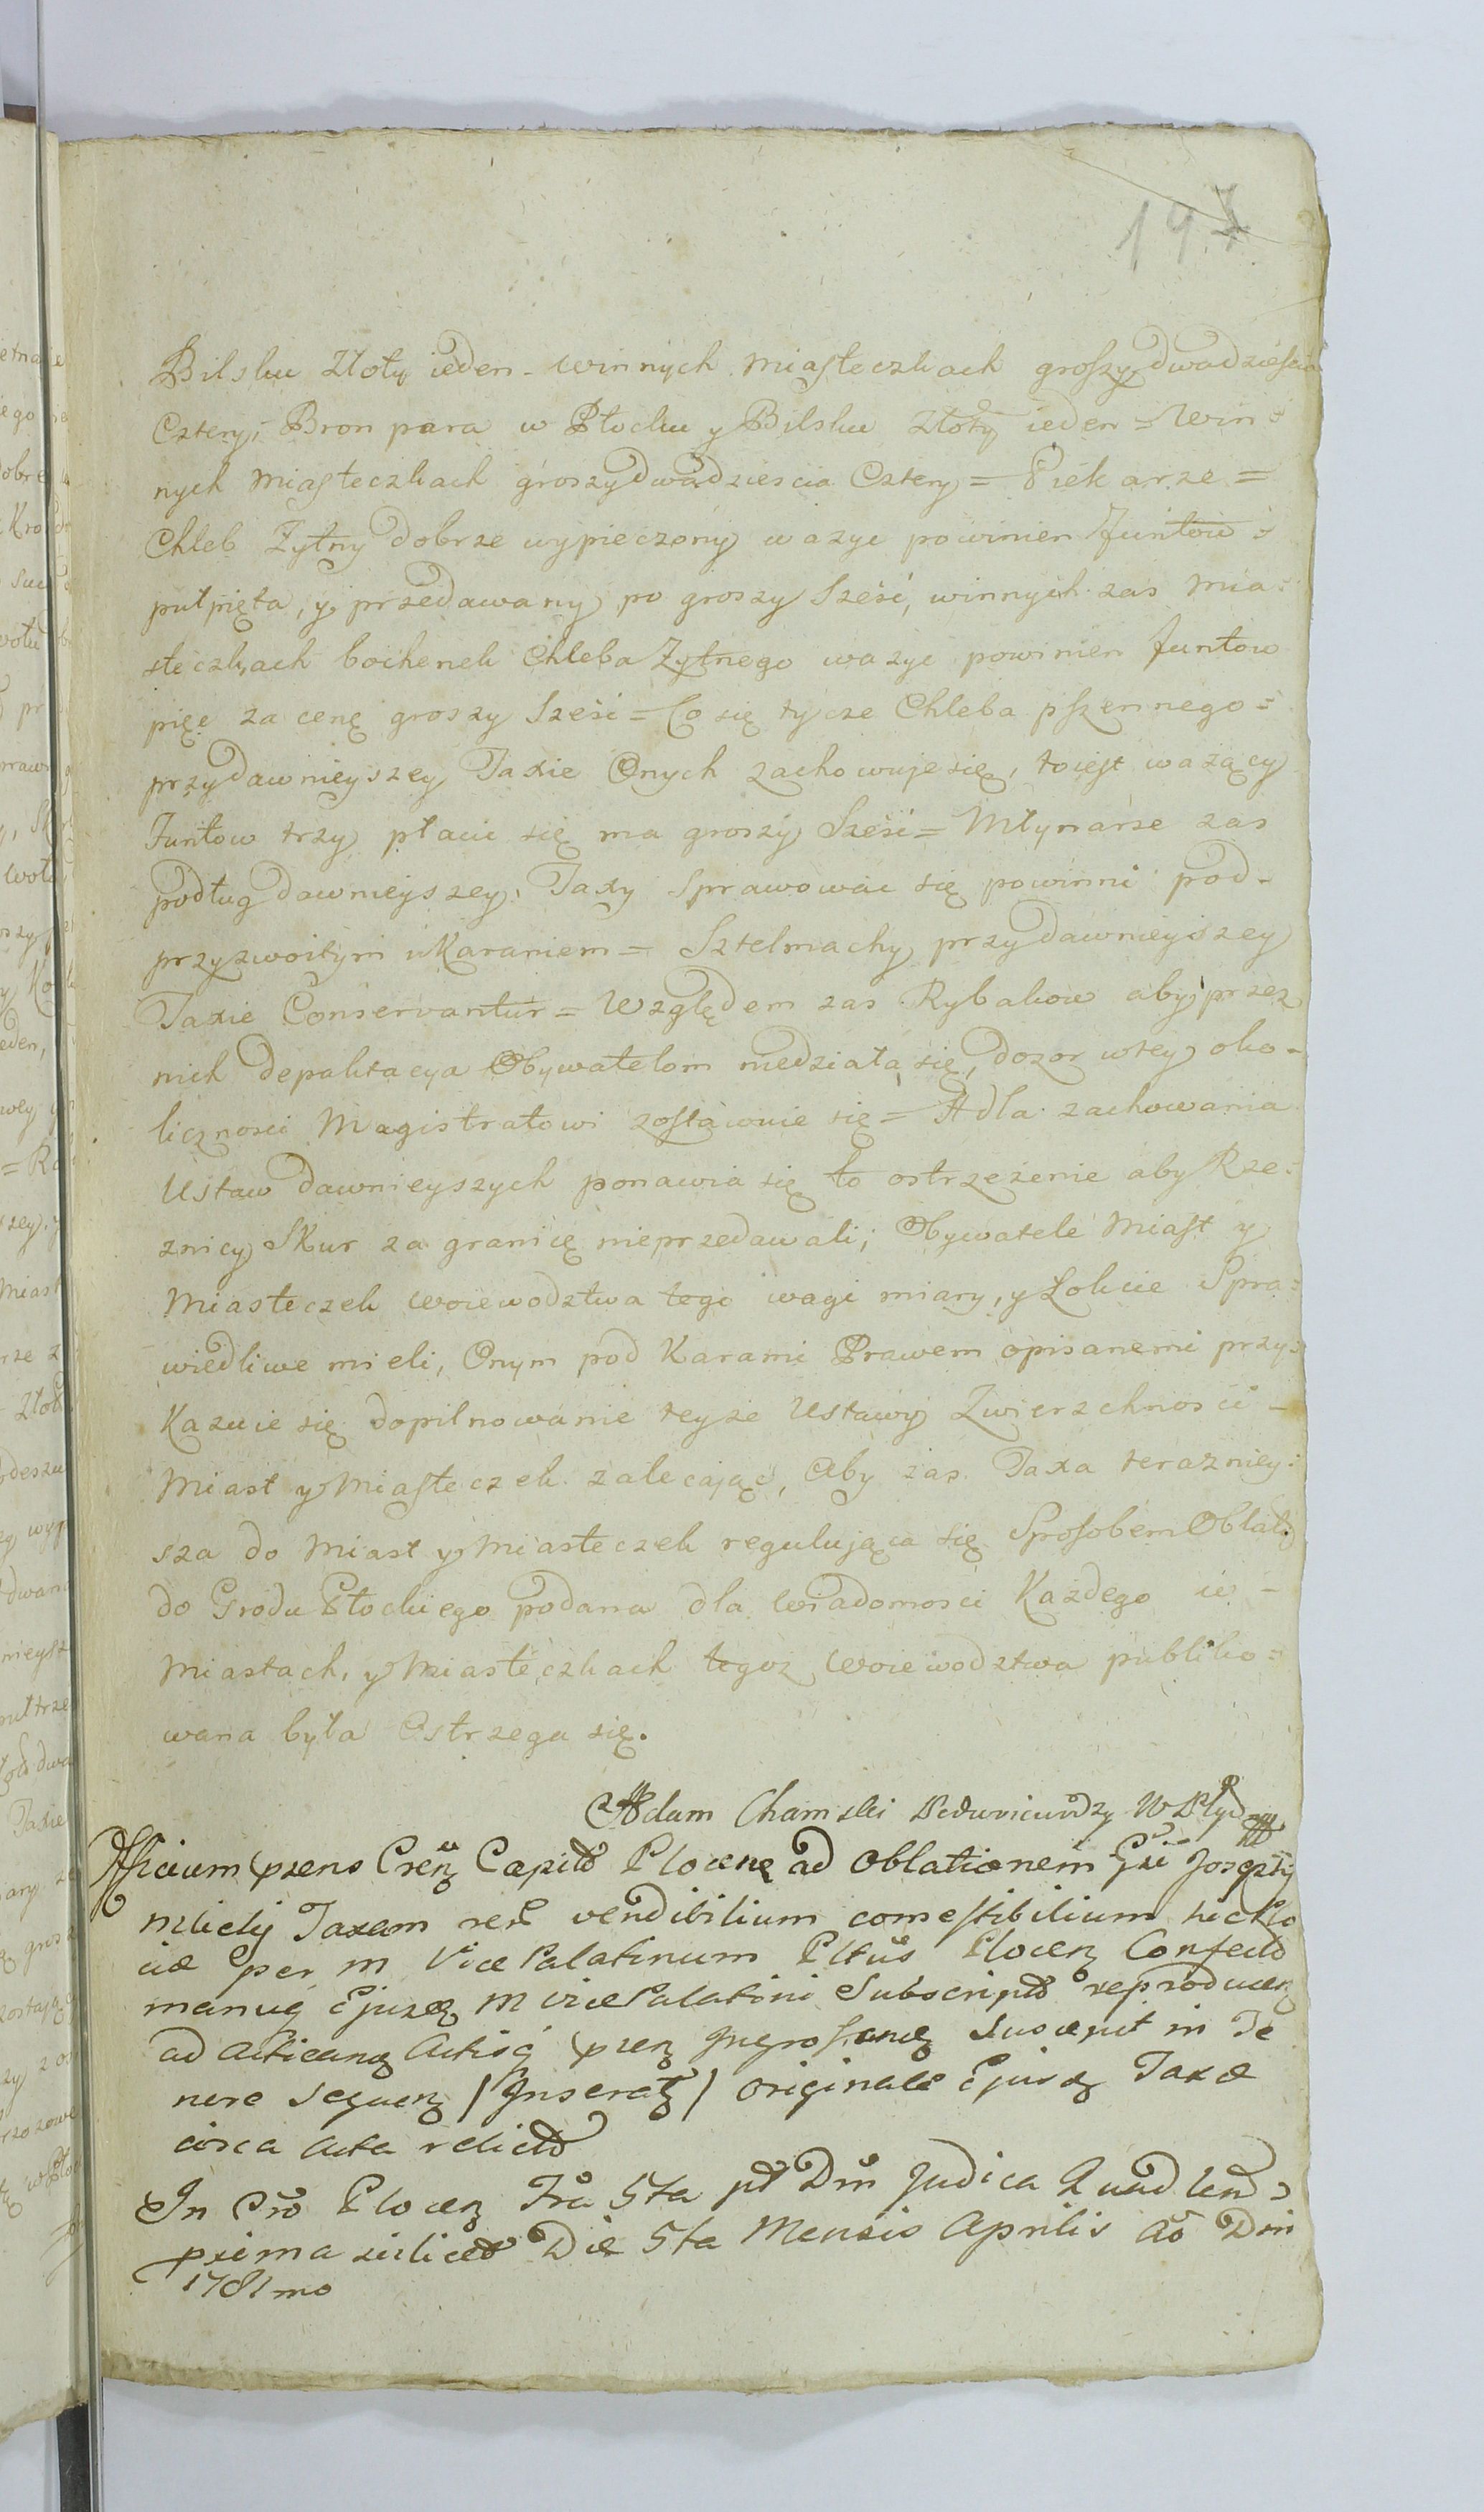 197
Bilsku Złoty ieden - winnych Miasteczkach groszy dwadziescia
Cztery, Bron para w Płocku y Bilsku złoty ieden = Win=
nych Miasteczkach groszy dwadziescia Cztery = Piekarze =
Chleb Zytny dobrze wypieczony wazyc powinien funtow
pułpięta, y przedawany po groszy Sześć, winnych zas Mia=
steczkach bochenek Chleba Zytnego wazyc powinien funtow
pięc za cenę groszy Sześć = Co się tycze Chleba pszennego =
przy dawnieyszey Taxie Onych zachowuje się, toiest ważący
Funtow trzy płacic się ma groszy Sześć = Młynarze zas
podług dawnieyszey Taxy Sprawowac się powinni pod-
przyzwoitym ukaraniem = Sztelmachy przy dawnieyszey
Taxie Conservantur = Względem zas Rybakow aby przez
nich depaktacya Obywatelom niedziała się, dozor wtey oko-
licznosci Magistratowi zostawuie się = A dla zachowania
Ustaw dawnieyszych ponawia się to ostrzeżenie aby Rze=
znicy Skur za granicę nieprzedawali; Obywatele Miast y
Miasteczek woiewodztwa tego wagi miary, y Łokcie Spra=
wiedliwe mieli, Onym pod Karami Prawem opisanemi przy=
Kazuie się dopilnowanie teyze Ustawy Zwierzchnosci -
Miast y Miasteczek zalecając, Aby zas Taxa terazniey=
sza do Miast y Miasteczek regulująca się Sposobem Oblaty
do Grodu Płockiego podana dla Wiadomosci Kazdego w -
Miastach, y Miasteczkach tegoz Woiewodztwa publiko=
wana była Ostrzega się.
Adam Chamski
Officium prens Capit Plocens ad Oblationem Josephi
Taxam vendibilium comestibilium
per M Vice Palatinum Pltus Plocen Confect
manuq Ejusq M Vice Palatini Subscript reproducen
ad Acticanq Actisq pren Ingrossanq Suscepit in Te
nore Sequen / Inserat / originale Ejusq Taxæ
circa Acta relict
In Plocen 5ta pt Dm Judica
prima scilicet Die 5ta Mensis Aprilis Ao Dni
1781mo